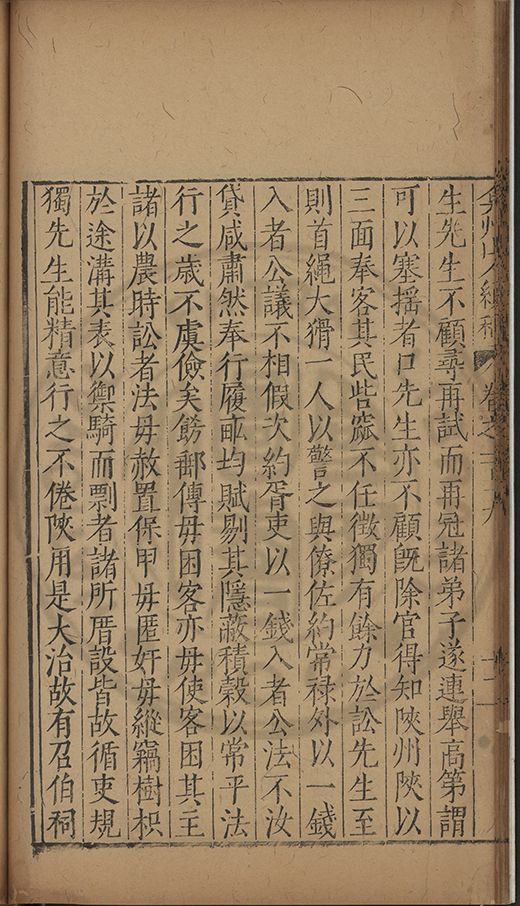 弇州山人續稿 卷之一百 九 十二
生先生不顧尋再試而再冠諸弟子遂連舉高第謂
可以塞揺者口先生亦不顧既除官得知陝州陝以
三面奉客其民呰窳不任徵獨有餘力於訟先生至
則首繩大猾一人以警之與僚佐約常祿外以一錢
入者公議不相假次約胥吏以一錢入者公法不汝
貸咸肅然奉行履畝均賦剔其隱蔽積穀以常平法
行之歲不虞儉矣飭郵傳毋困客亦毋使客困其主
諸以農時訟者法毋赦置保甲毋匿奸毋縱竊樹枳
於途溝其表以禦騎而剽者諸所厝設皆故循吏規
獨先生能精意行之不倦陝用是大治故有召伯祠